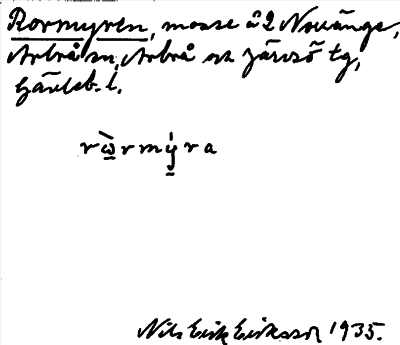 Rormyren, mosse å 2 Norränge,
Arbrå sn, Arbrå och Järvsö tg,
Gävleb. l.
rὼ̲rmý̲ra
Nils Erik Eriksson 1935.